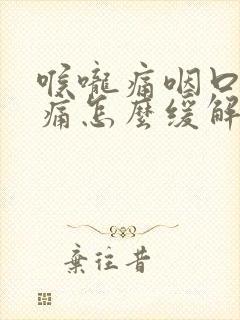 喉嚨痛咽口
痛怎麼緩解
棄往昔